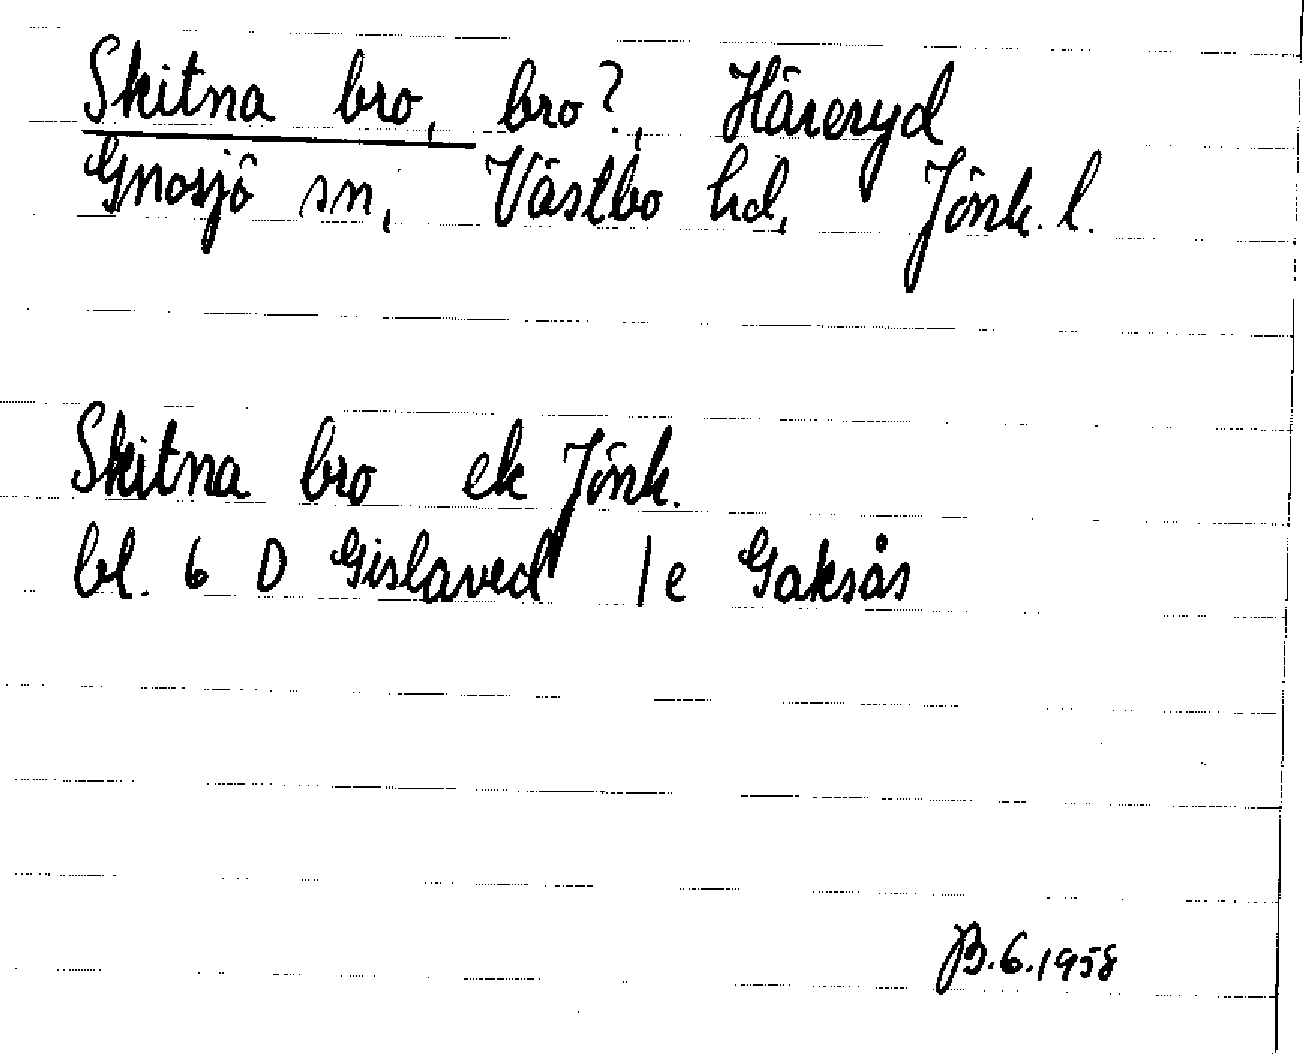 Skitna bro, bro?, Häreryd
Gnosjö sn, Västbo hd, Jönk. l.
Skitna bro ek Jönk.
bl. 6 D Gislaved 1e Gaksås
B.6.1958